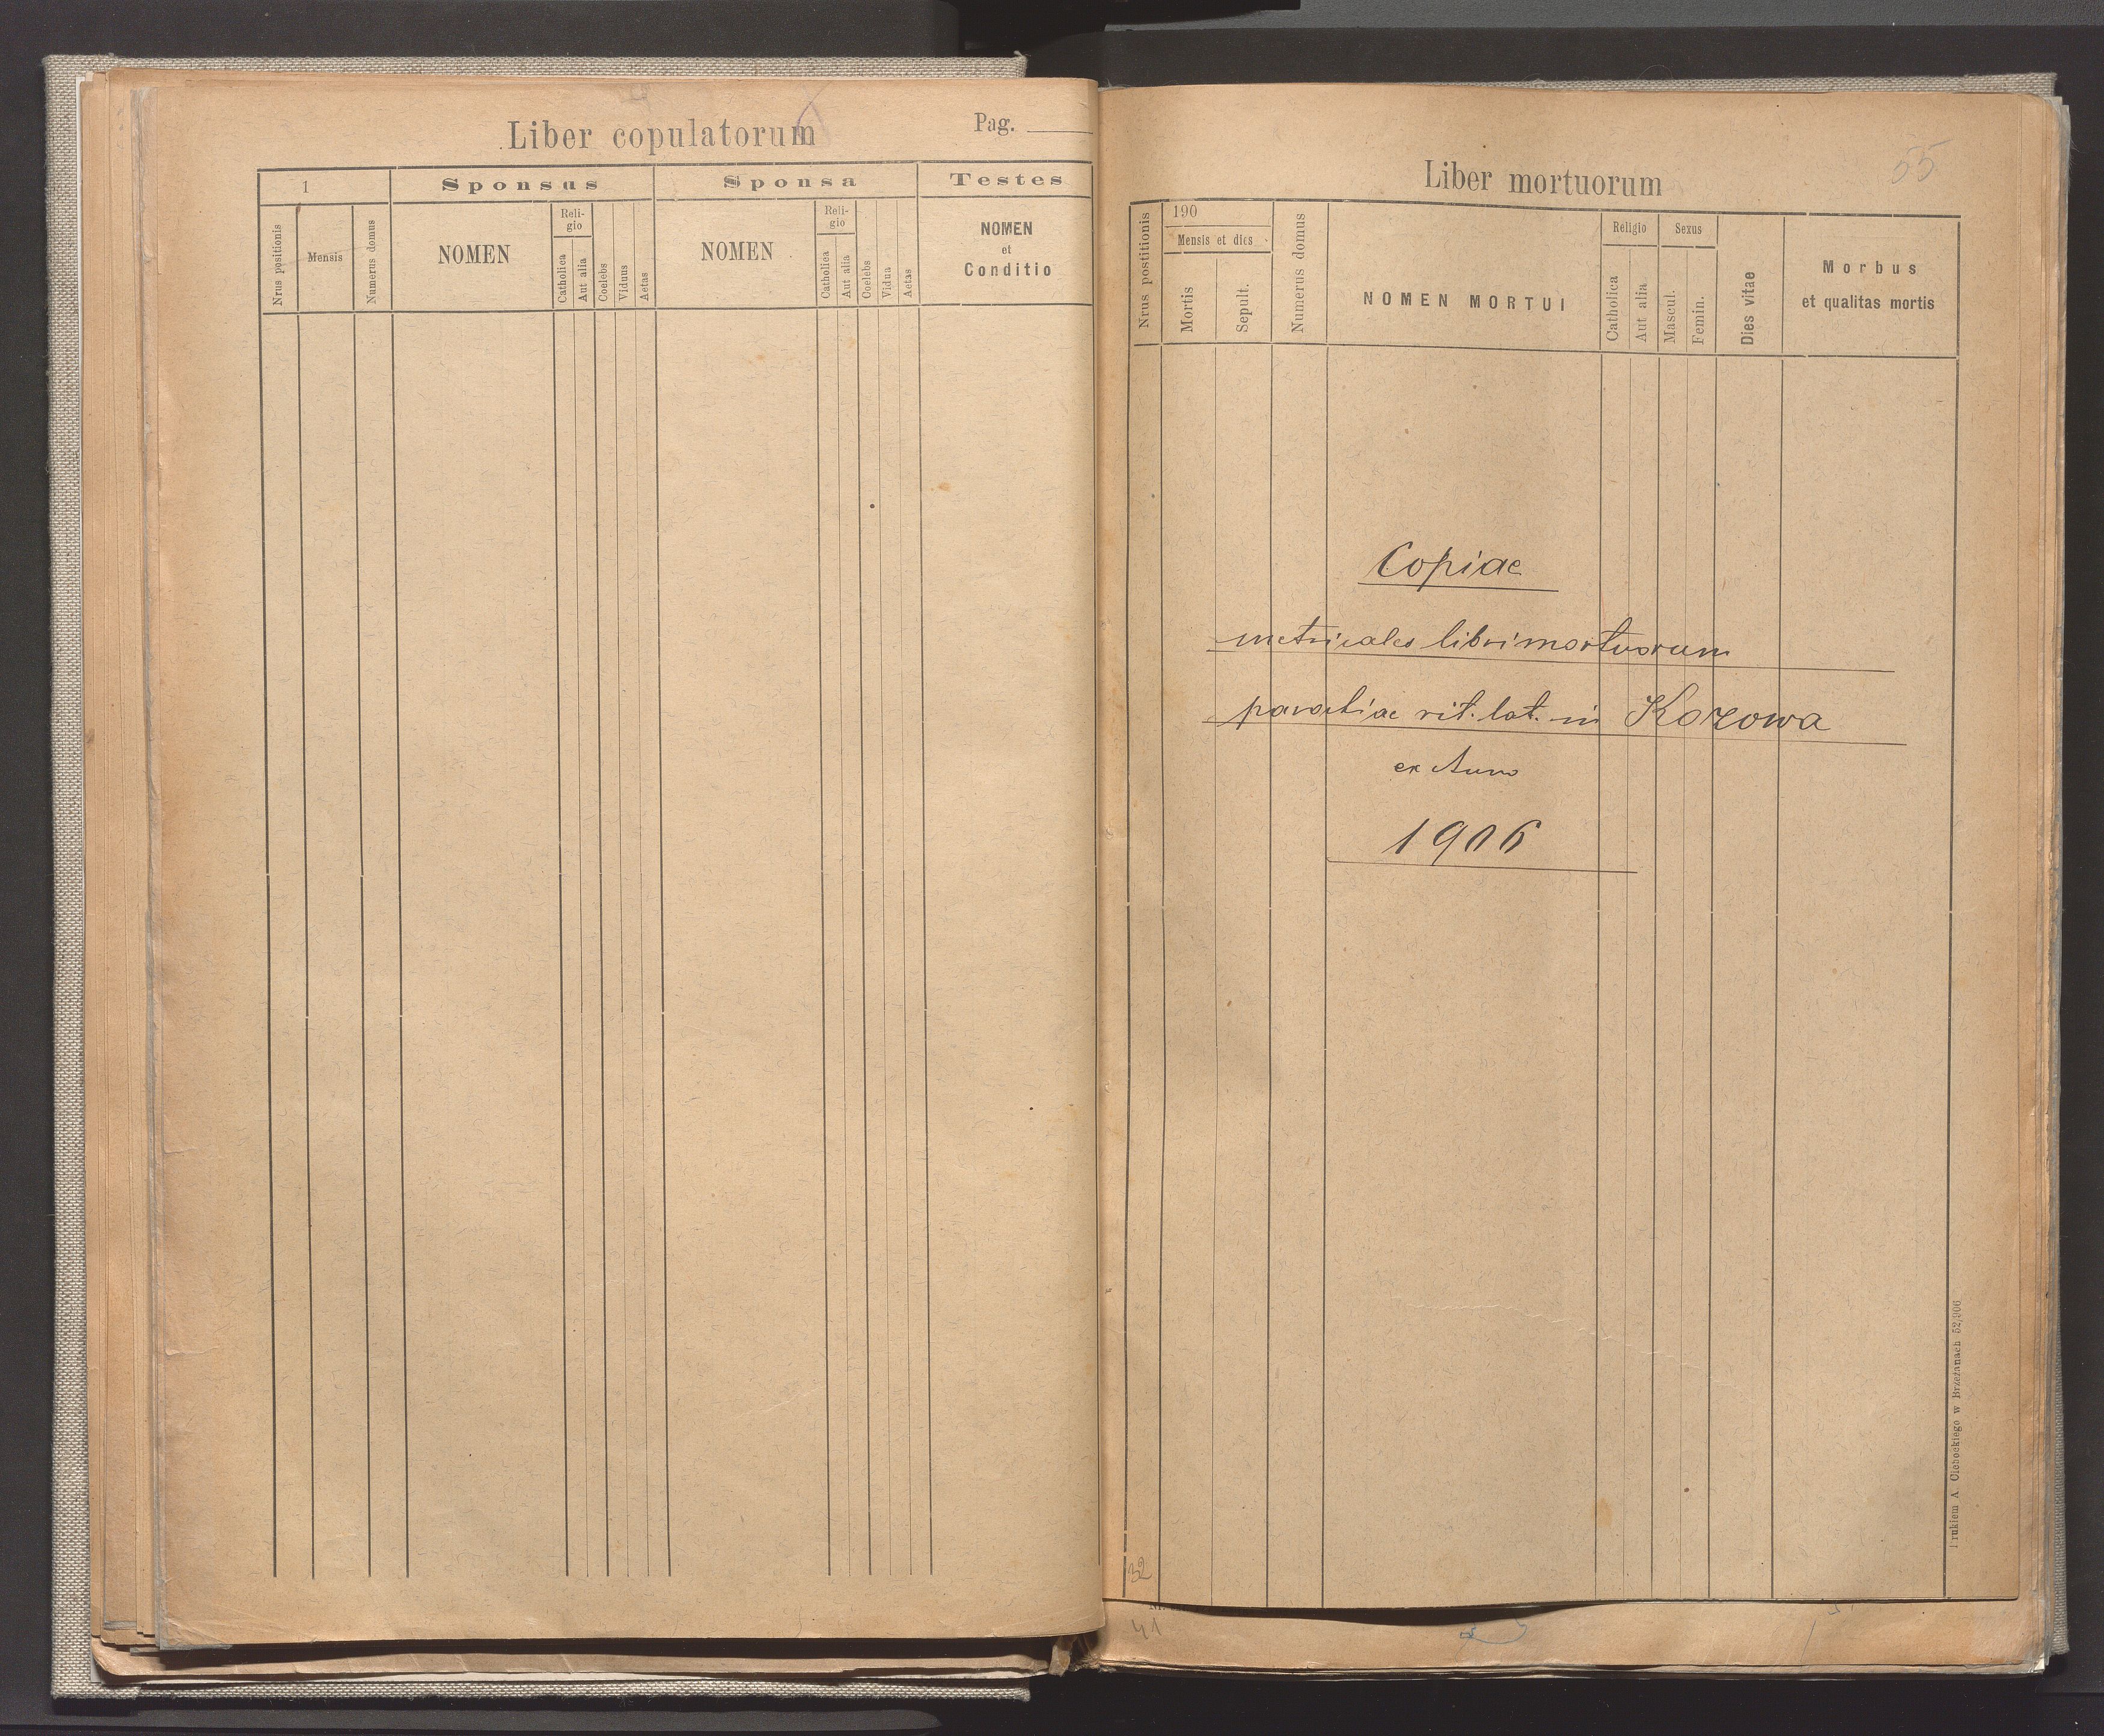 Liber copulatorum
Pag.
1
Sponsus
Sponsa
Testes
Nrus positionis
Mensis
Numerus domus
NOMEN
Reli-
gio
Catholica
Aut alia
Coelebs
Viduus
Aetas
NOMEN
Reli-
gio
Catholica
Aut alia
Coelebs
Vidua
Aetas
NOMEN
et
Conditio
55
Liber mortuorum
Nrus postitionis
190
Mensis et dies
Mortis
Sepult.
Numerus domus
NOMEN MORTUI
Religio
Catholica
Aut alia
Sexus
Mascul.
Femin.
Dies vitae
Morbus
et qualitas mortis
Copiae
metricales libri mortuorum
parochiae rit. lat. in Kozowa
ex Anno
1906
rukiem A Cichockiego w Brzeżanach 52,906
32
41